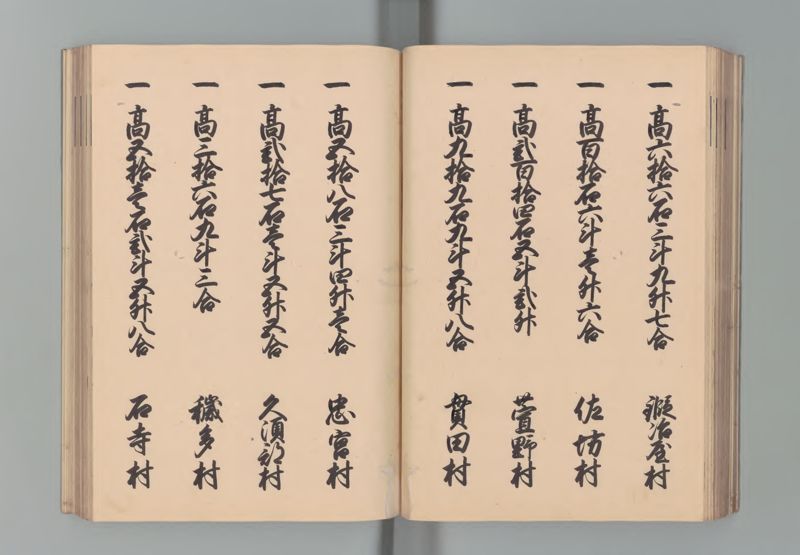 一 高六拾六石三斗九升七合 鍛冶屋村
一 高百拾石六斗壱升六合 佐坊村
一 高弐百拾四石五斗弐升 萱野村
一 高九拾九石九斗五升八合 貫田村
一 高五拾八石三斗四升壱合 忠宮村
一 高弐拾七石壱斗五升五合 久須部村
一 高三拾六石九斗三合 穢多村
一 高五拾壱石弐斗五升八合 石寺村